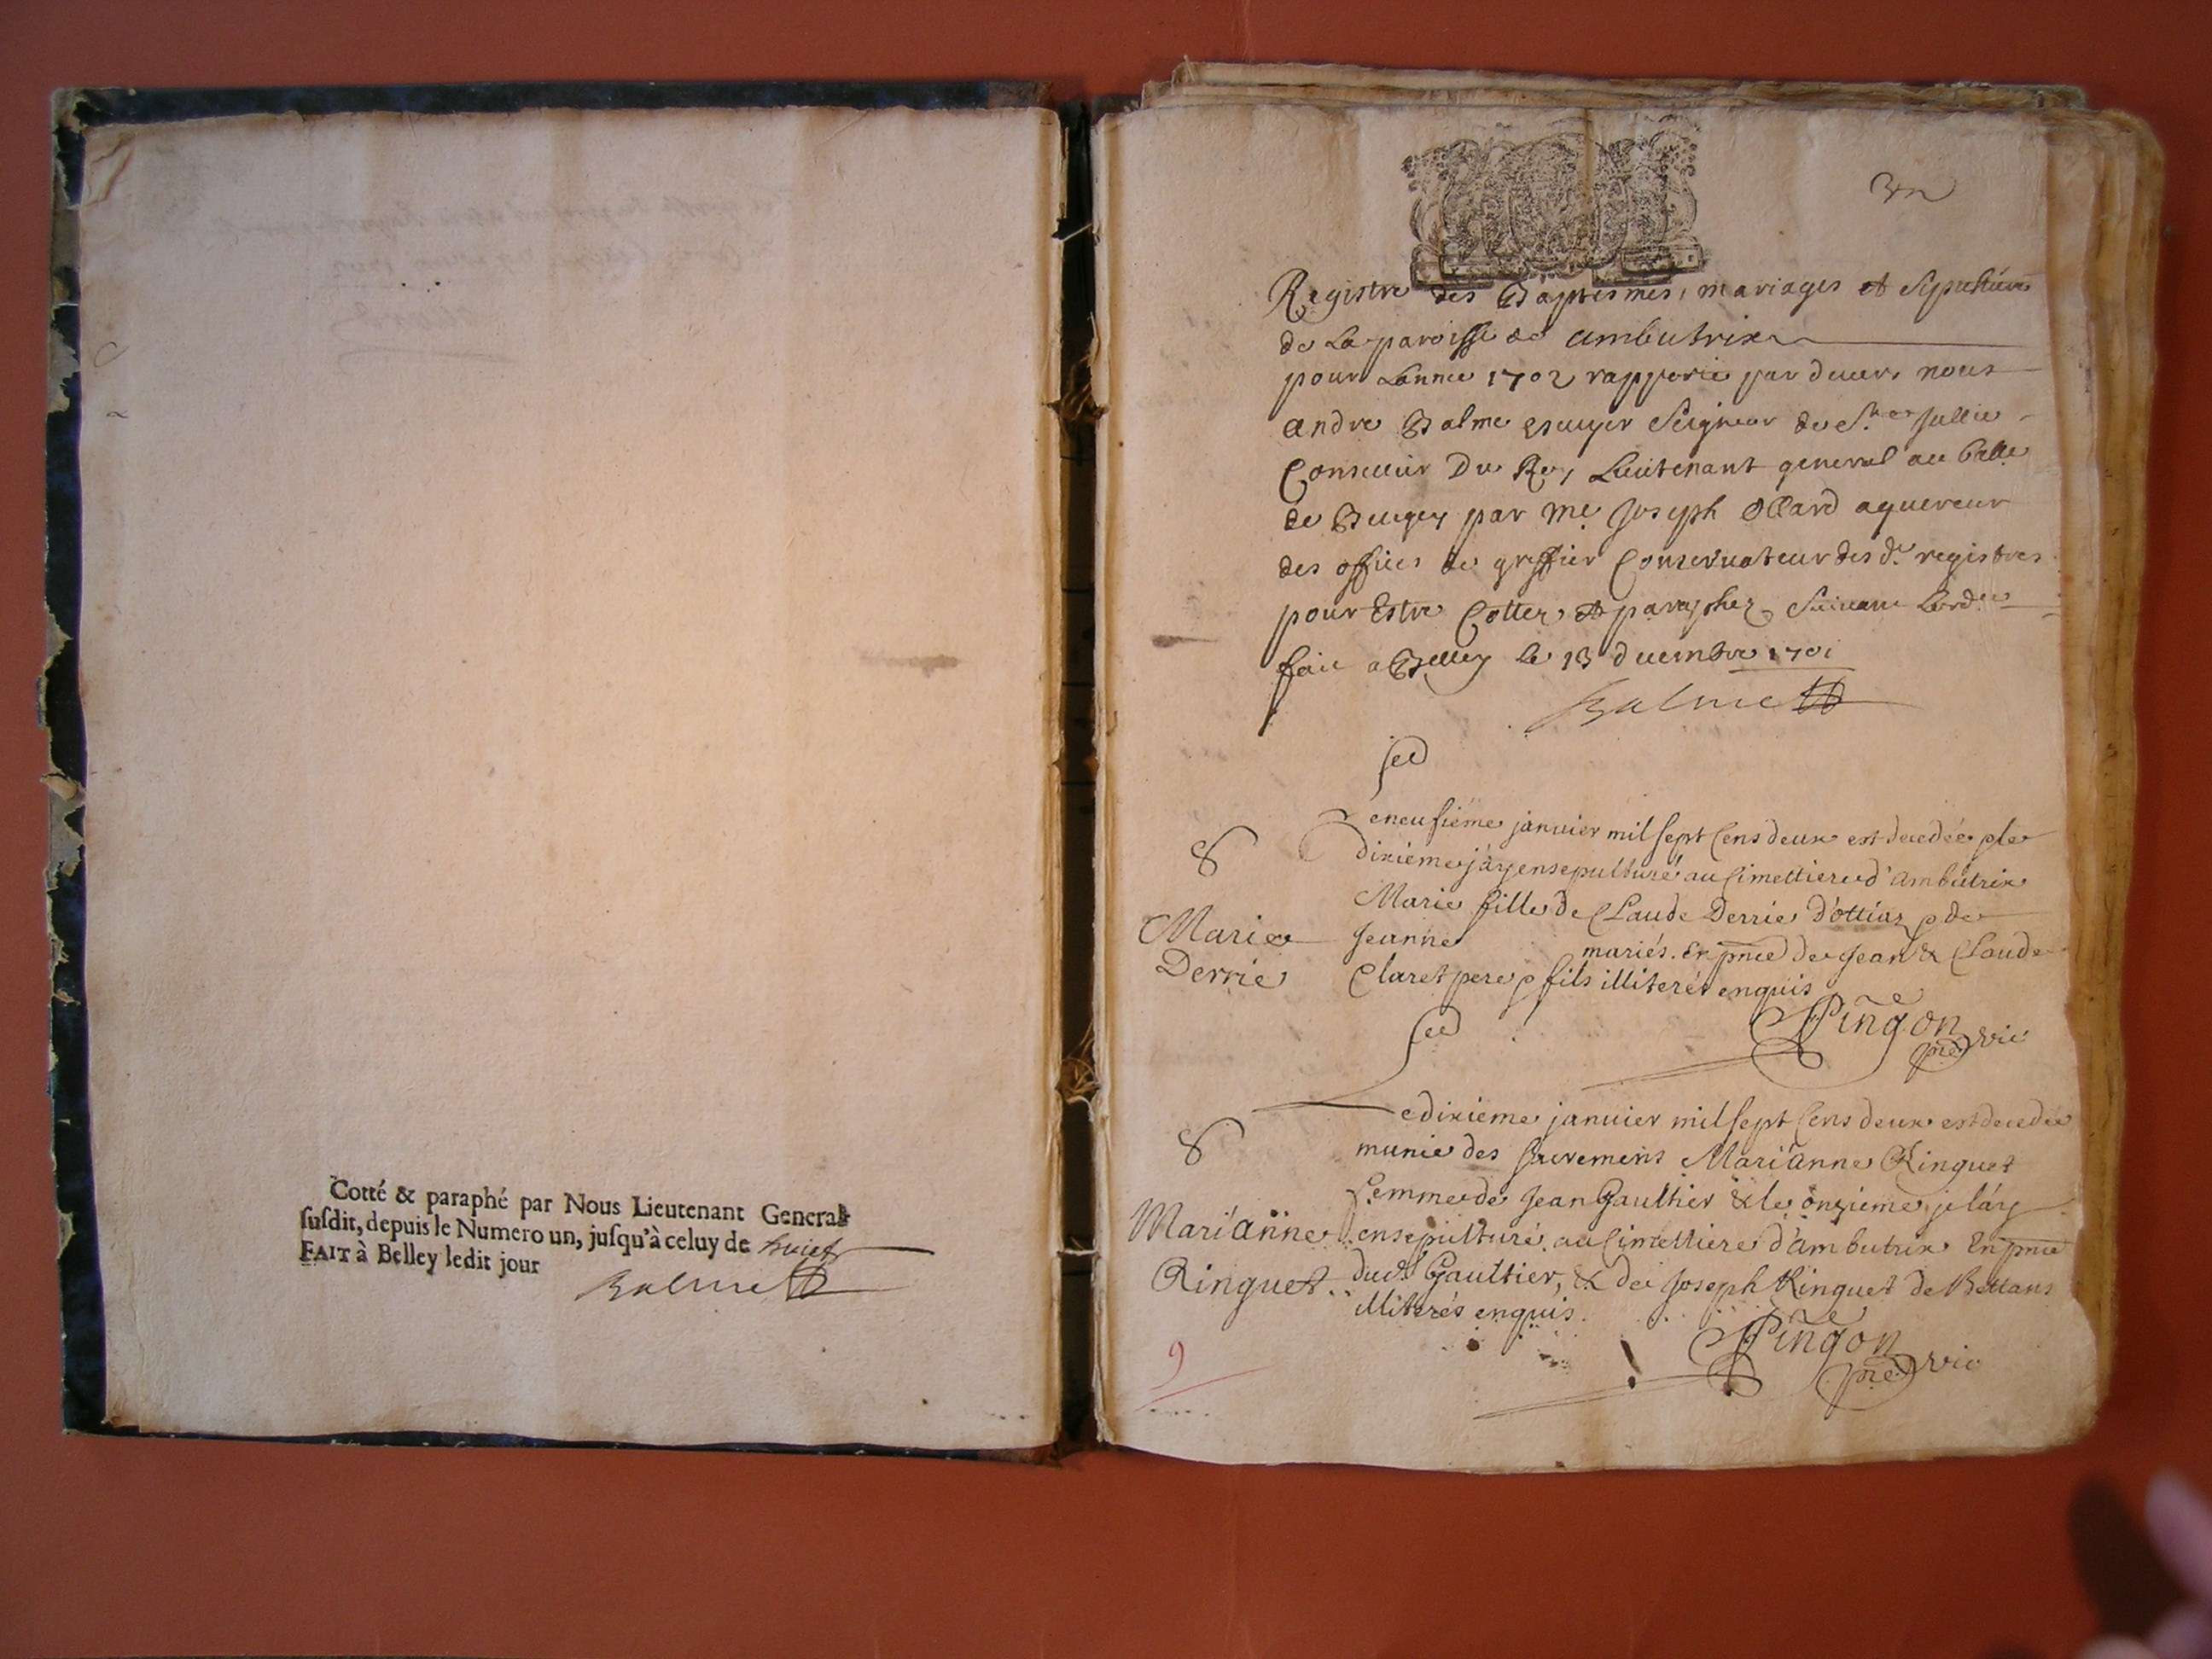 Cotté & paraphé par Nous Lieutenant General
susdit, depuis le Numero un, jusqu'à celuy de huict
FAIT à Belley ledit jour
Balme
Registre des Baptesmes, mariages et Sepultures
de La paroisse de ambutrix
pour Lannee 1702 rapporté par devers nous
andre Balme escuyer Seigneur de Ste Jullie
Conseiller Du Roy Lieutenant general au balle
de Beugey par me Joseph Ollard aquereur
des offices de greffier Conservateur des d. registres
pour Estre Cottez et paraphez Suivant Lord.ce
faict a Belley le 13 decembre 1701
Balme
sed
Le neufiéme janvier mil sept Cens deux est decedée, & le
dixiéme j'ay ensepulturé au Cimettiere d'ambutrix
Marie fille de Claude Derrie d'ottiaz & de
Jeanne mariés. En pnce de Jean & Claude
Claret pere & fils illiterés enquis
Marie
Derrie
Pingon
pre vic
sed
Le dixieme janvier mil sept Cens deux est decedée
munie des sacremens Marianne Ringuet
femme de Jean Gaultier & le onzieme je l'ay
ensepulturé au Cimettiere d'ambutrix En pnce
dud. Gaultier, & de Joseph Ringuet de Bettans
illiterés enquis.
Marianne
Ringuet
Pingon
pre vic
9